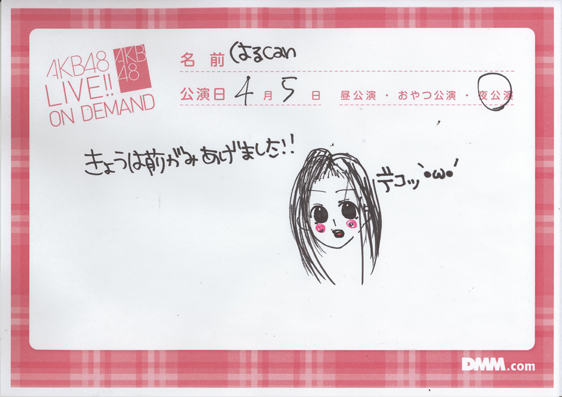 AKB48
LIVE!!
ON DEMAND
AKB
48
名前 はるcan
公演日 4月5日 昼公演・おやつ公演・夜公演
きょうは前がみあげました!!
デコッ`•ω•´
DMM.com